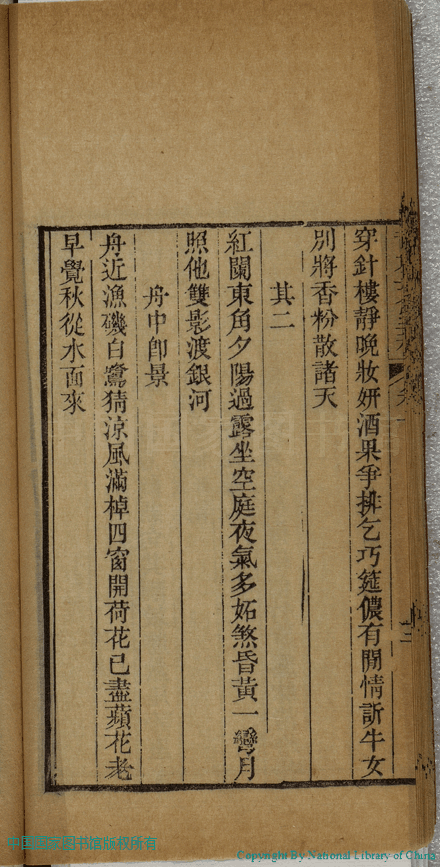 穿針樓靜晚妝妍酒果爭排乞巧筵儂有閒情訴牛女
別將香粉散諸天
其二
紅闌東角夕陽過露坐空庭夜氣多妬煞昏黃一彎月
照他雙影渡銀河
舟中即景
舟近漁磯白鷺猜涼風滿棹四窗開荷花已盡蘋花老
早覺秋從水面來
中国国家图书馆版权所有
Copyright By National Library of China